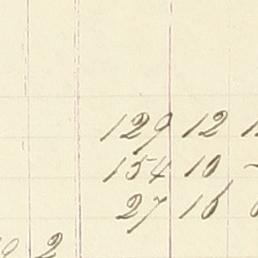 129 12
154 10 -
27 16
2